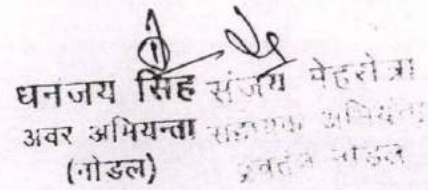 धनंजय सिंह संजय मेहरोत्रा
अवर अभियन्ता सहायक अभियंता
(नोडल) नोडल